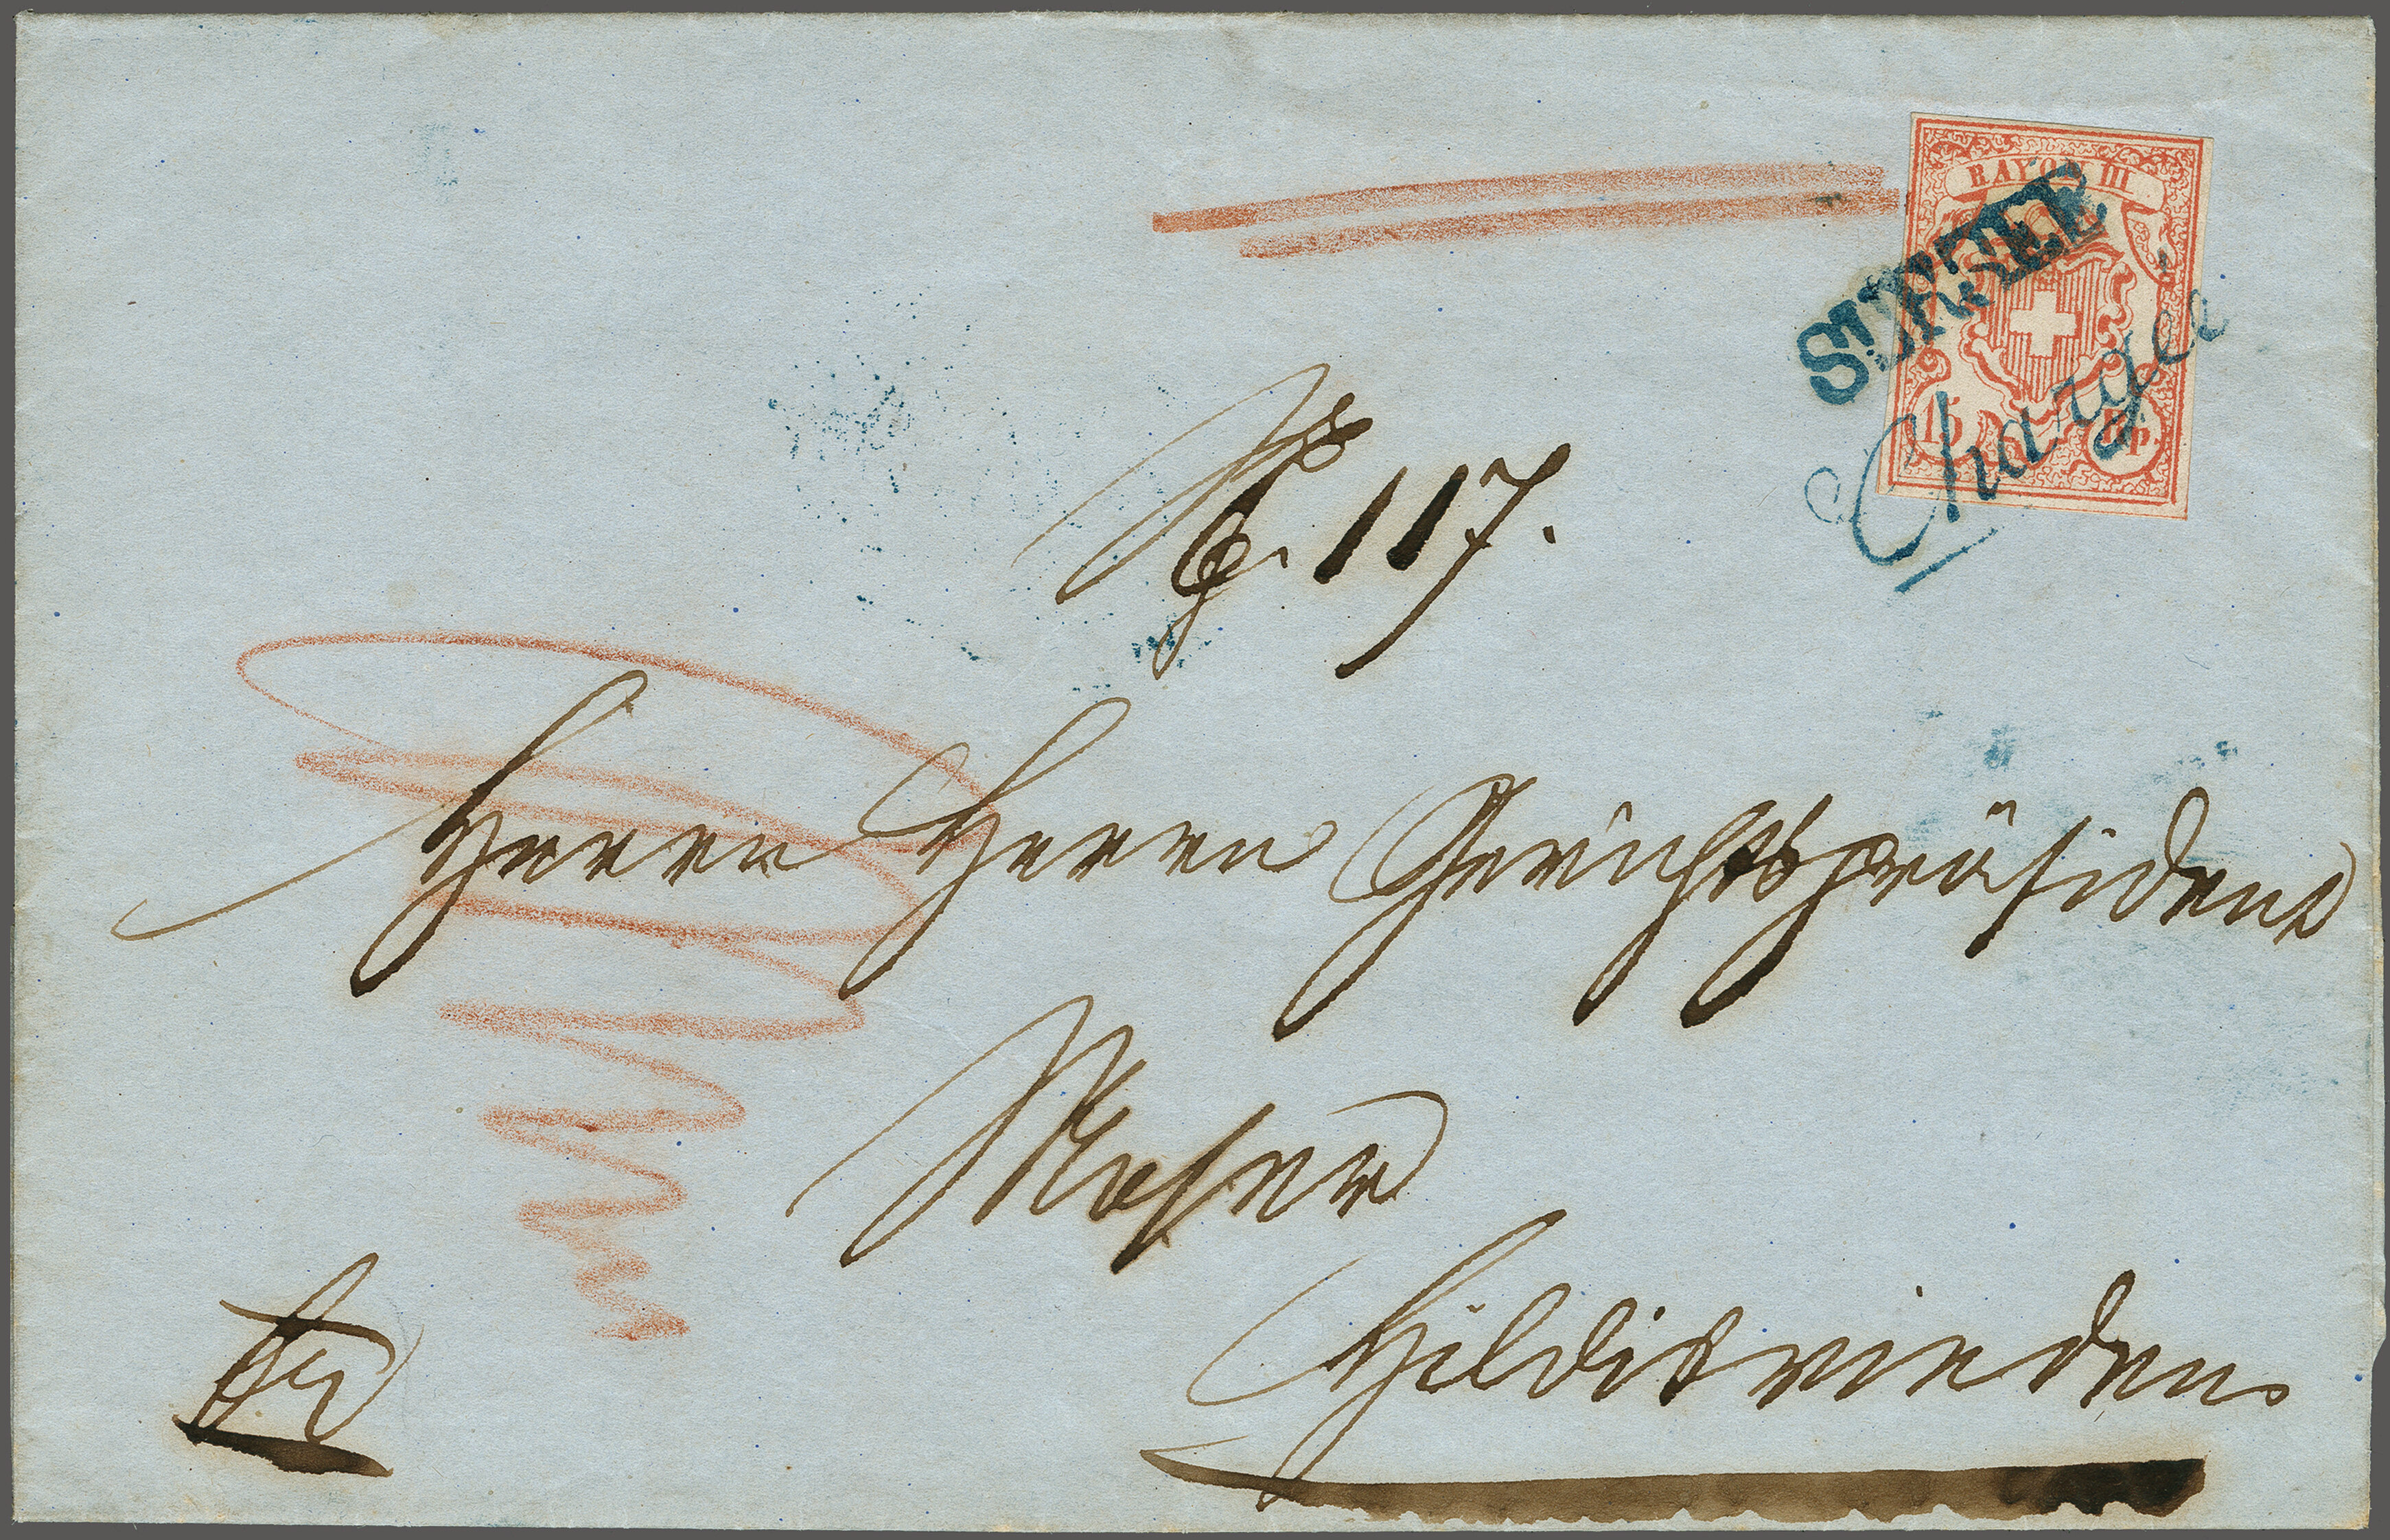 RAYON III
SURSEE
15 Rp.
Chargé
No. 117.
Herrn Herrn Gerichtspräsident
Moser
Hildisrieden